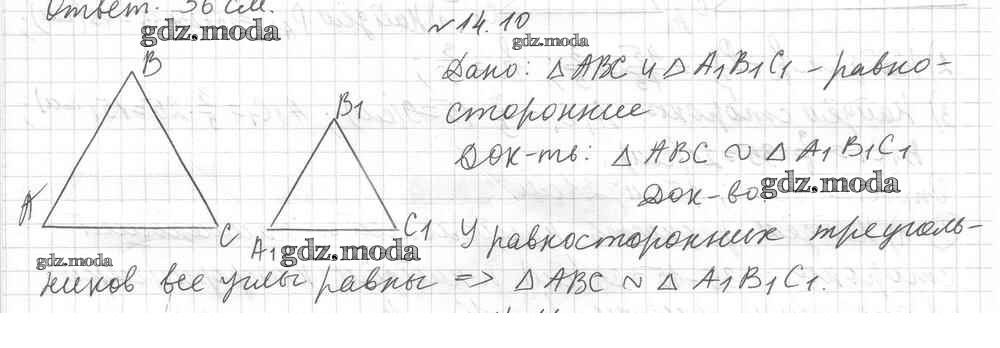 Ответ: 36 см.
gdz.moda
№ 14.10
gdz.moda
B
Дано: △ ABC и △ A1B1C1 - равно-
B1
сторонние
Док-ть: △ ABC ∾ △ A1B1C1
Док-во:
gdz.moda
A
C
A1
C1
gdz.moda
У равносторонних треуголь-
gdz.moda
ников все углы равны => △ ABC ∾ △ A1B1C1.